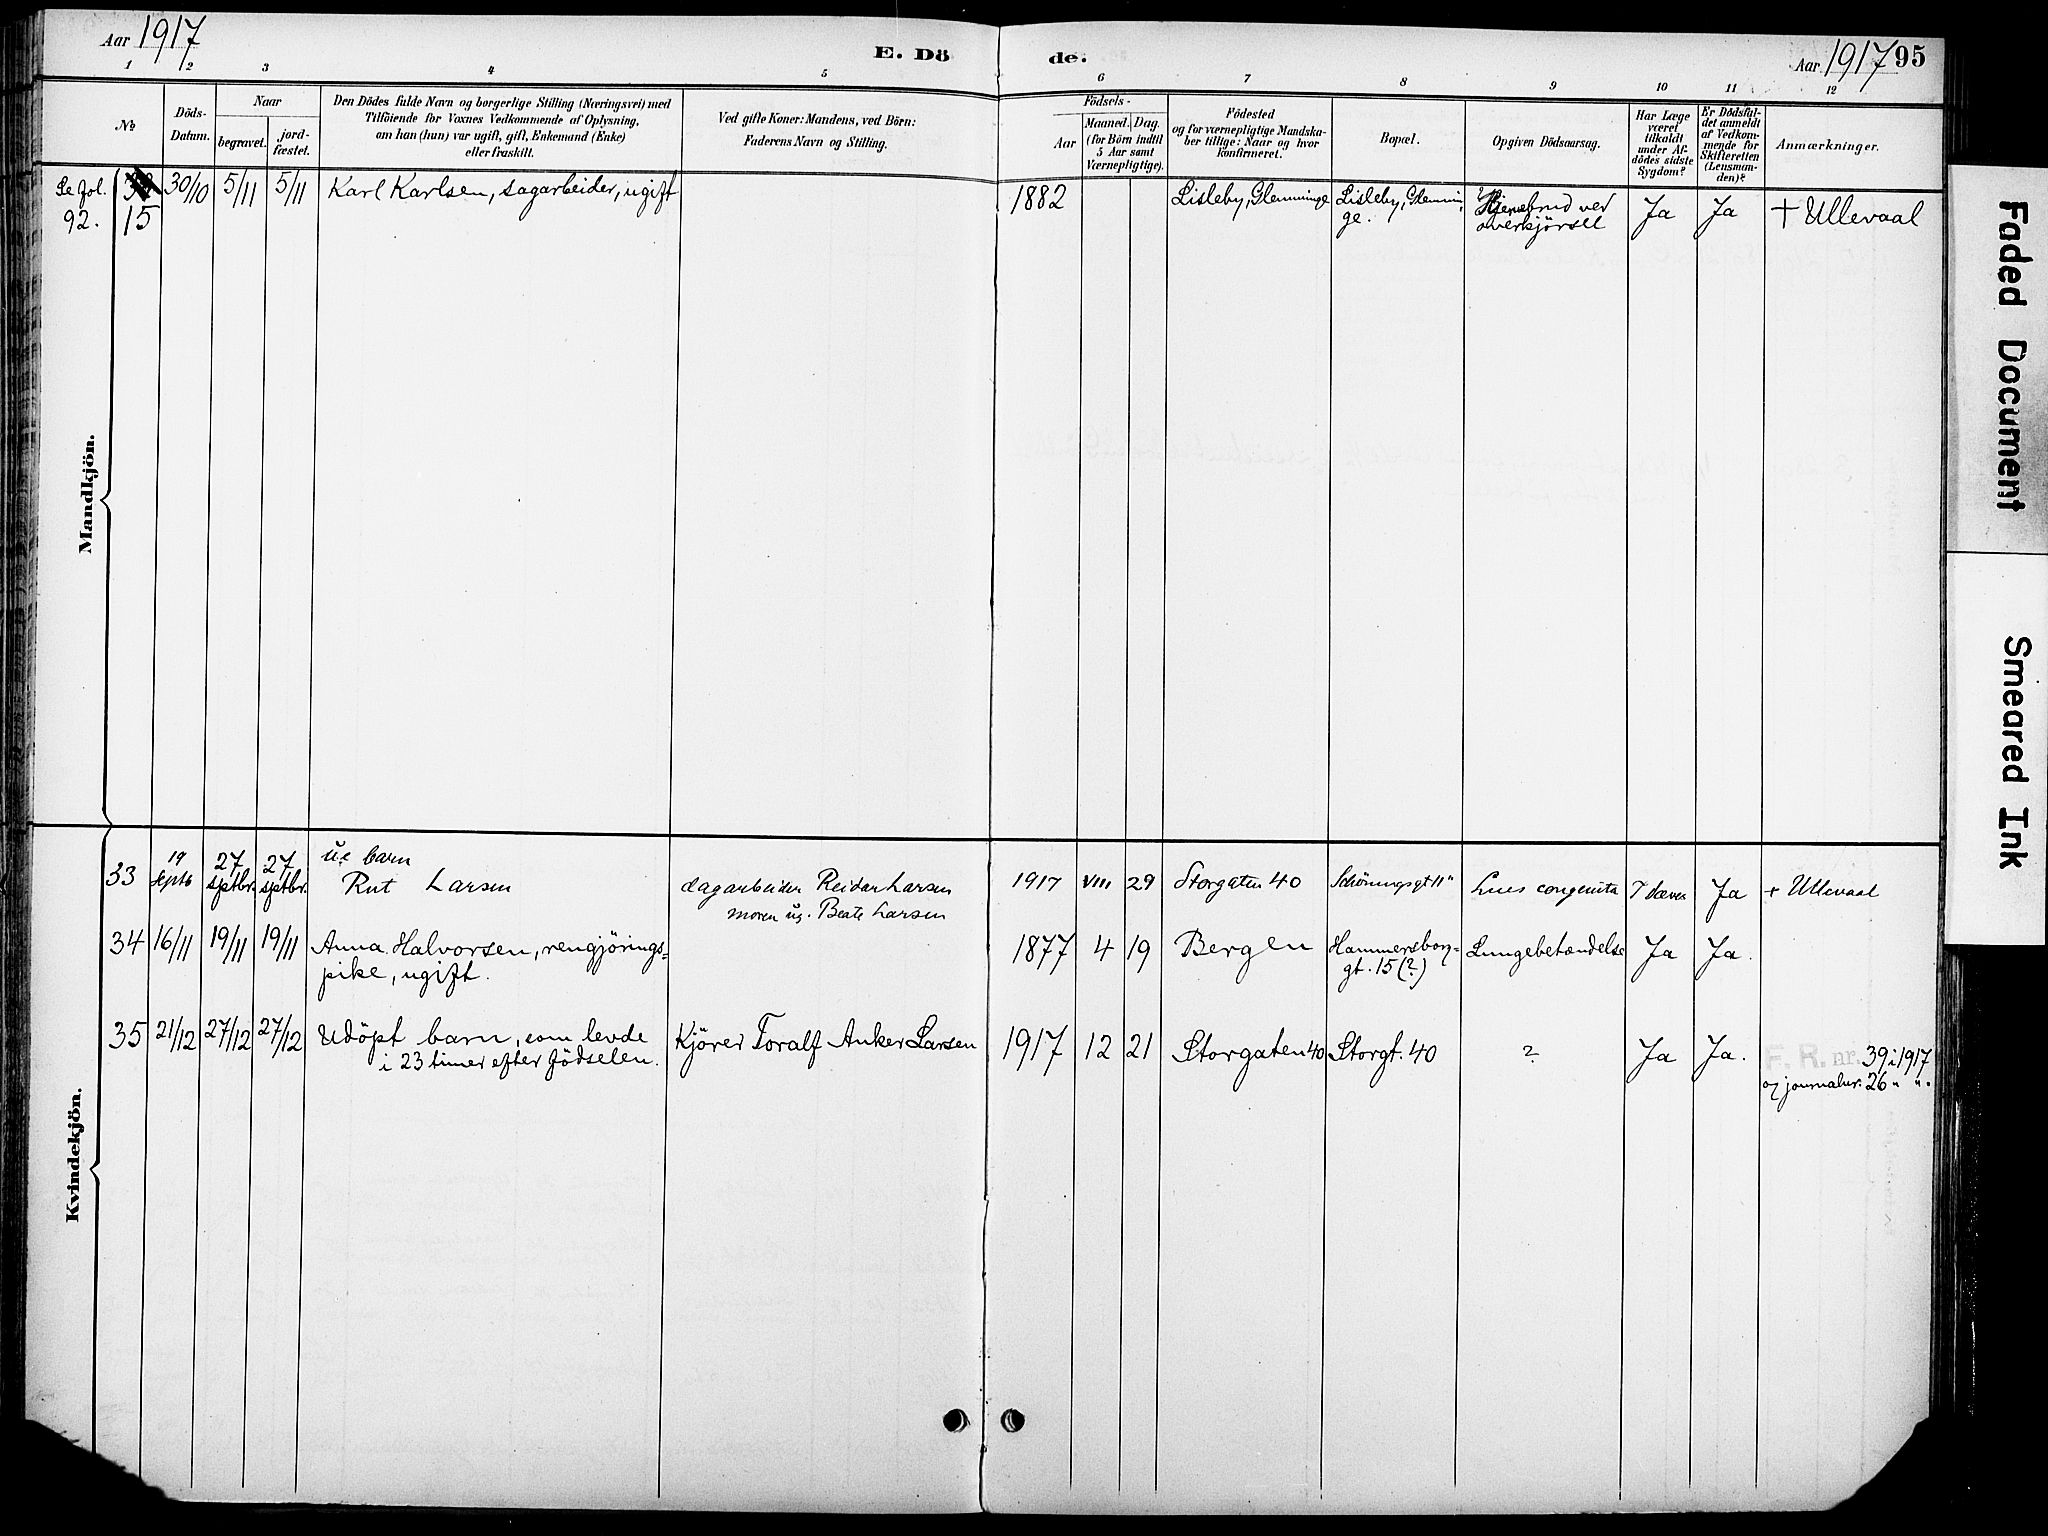 Aar 1917
E. Dö
de.
Aar 1917 95
1 2 3 4 5 6 7 8 9 10 11 12
No
Döds-
Datum.
Naar
begravet.
jord-
fæstet.
Den Dödes fulde Navn og borgerlige Stilling (Næringsvei) med
Tilföiende for Voxnes Vedkommende af Oplysning,
om han (hun) var ugift, gift, Enkemand (Enke)
eller fraskilt.
Ved gifte Koner: Mandens, ved Börn:
Faderens Navn og Stilling.
Födsels-
Aar
Maaned. Dag.
(for Börn indtil
5 Aar samt
Værnepligtige).
Födested
og for værnepligtige Mandska-
ber tillige: Naar og hvor
konfirmeret.
Bopæl.
Opgiven Dödsaarsag.
Har Læge
været
tilkaldt
under Af-
dödes sidste
Sygdom?
Er Dödsfal-
det anmeldt
af Vedkom-
mende for
Skifteretten
(Lensman-
den)?
Anmærkninger.
Mandkjön.
Se fol.
92.
15
30/10 5/11 5/11 Karl Karlsen, sagarbeider, ugift
1882 Lisleby, Glemminge Lisleby, Glemmin,
ge.
ved
overkjörsel
Ja Ja † Ullevaal
Kvindekjön.
33
19
Septb
27
sptbr.
27
sptbr.
u.e barn
Rut Larsen
dagarbeider Reidar Larsen
moren ug. Beate Larsen
1917 VIII 29 Storgaten 40 Schöningsgt 11" Lues congenita Ja + Ullevaal
34 16/11 19/11 19/11 Anna Halvorsen, rengjörings=
pike, ugift.
1877 4 19 Bergen Hammersborg=
gt. 15 (?)
Lungebetændelse Ja Ja.
35 21/12 27/12 27/12 Udöpt barn, som levde
i 23 timer efter födselen.
Kjörer Toralf Anker Larsen
1917 12 21 Storgaten 40 Storgt. 40 ? Ja Ja.
F. R. nr. 39 i 1917
og journalnr. 26 " ".
Faded Document
Smeared Ink